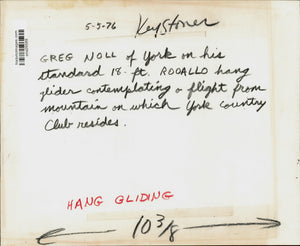 5-5-76 Keystoner
GREG NOLL of York on his
standard 18-ft. ROGALLO hang
glider contemplating a flight from
mountain on which York Country
Club resides.
HANG GLIDING
10 3/8